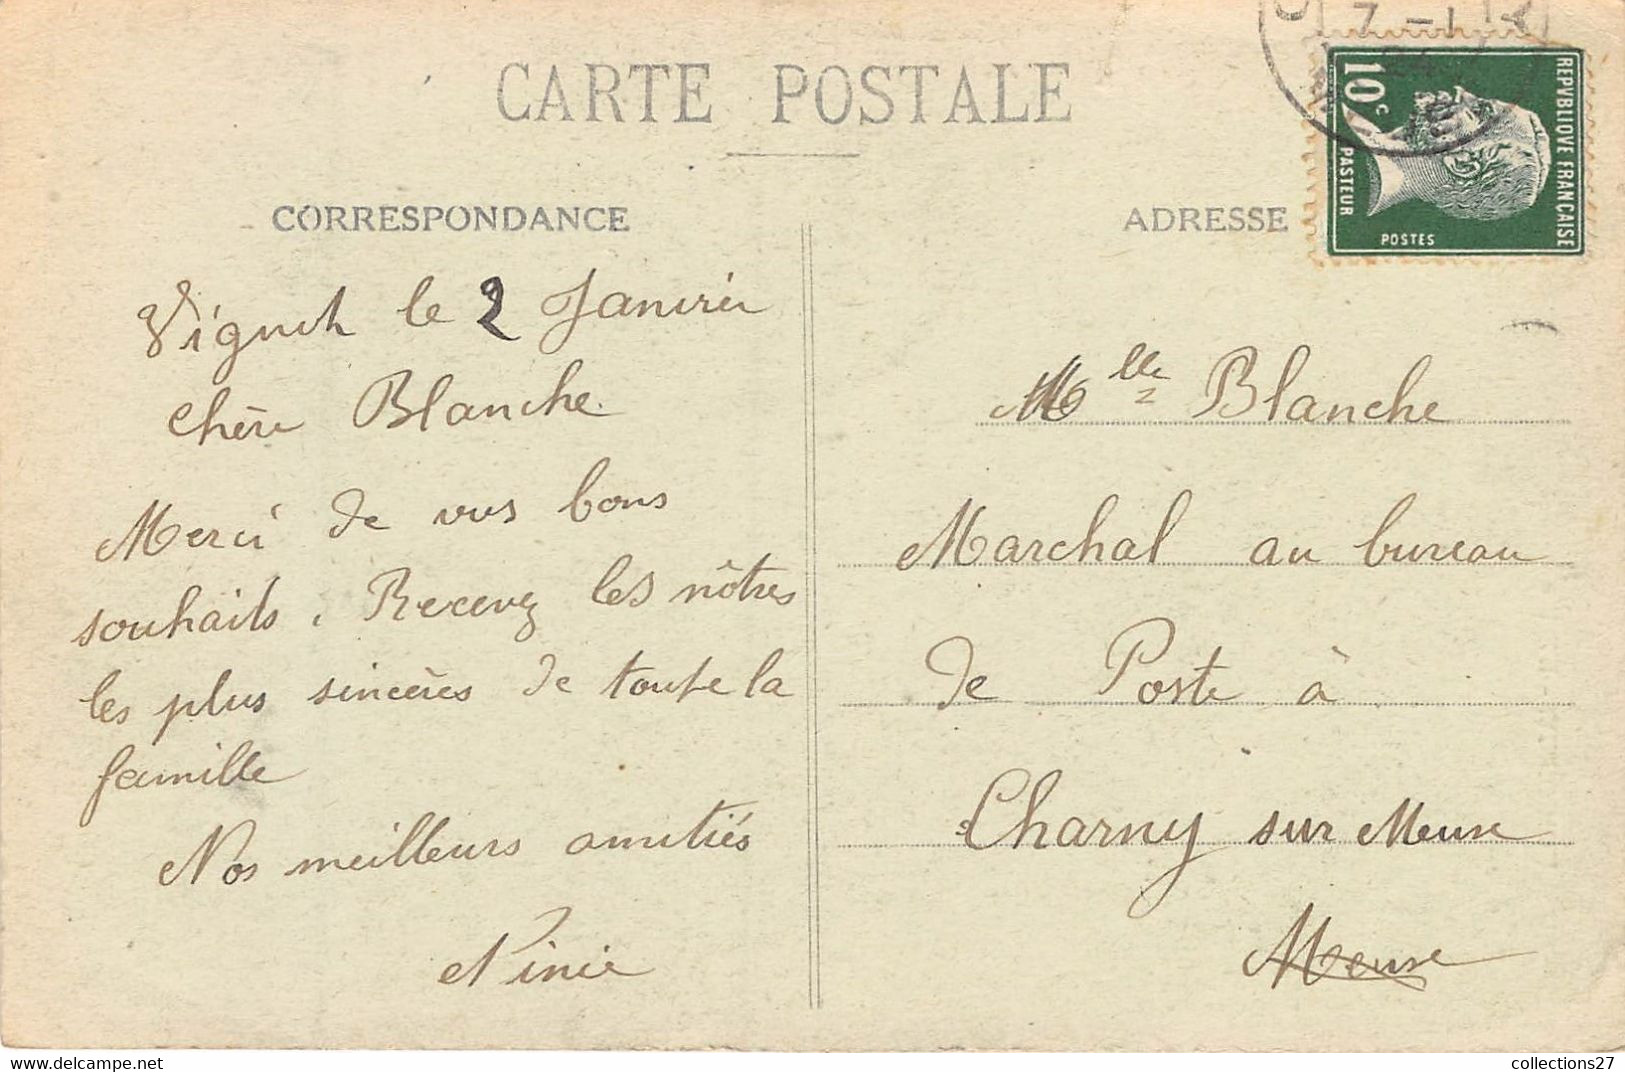 CARTE POSTALE
CORRESPONDANCE
Vignot le 2 Janvier
Chère Blanche.
Merci de vos bons
souhaits. Recevez les nôtres
les plus sincères de toute la
famille
Nos meilleurs amitiés
Ninie
ADRESSE
REPVBLIQVE FRANCAISE
10c
PASTEUR
POSTES
7 - 1
Mlle Blanche
Marchal au bureau
de Poste à
Charny sur Meuse
Meuse
https://www.delcampe.net
collections27